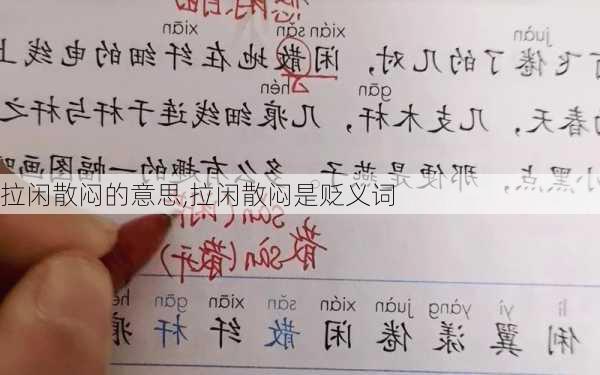 juàn xián sǎn xiān
飞倦了的几对，闲散地在纤细的电线上
gān hén
春天，几支木杆，几痕细线连于杆与杆之
小黑点，那便是燕子。多么有趣的一幅图画
拉闲散闷的意思,拉闲散闷是贬义词
散 sàn(散开)
lì yì yàng juàn xián sǎn xiān gān hén
俐 翼 漾 倦 闲 散 纤 杆 痕